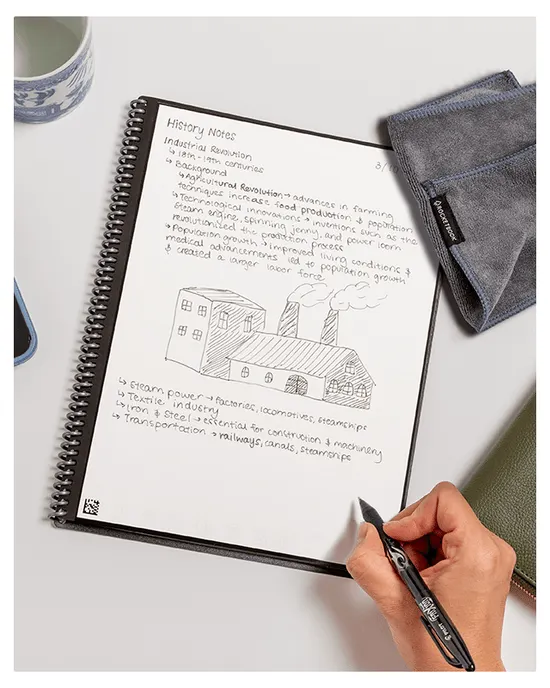 History Notes
3/
Industrial Revolution
↳ 18th-19th centuries
↳ Background
↳ Agricultural Revolution → advances in farming
techniques increase food production & population
↳ Technological innovations → inventions such as the
steam engine, spinning jenny, and power loom
revolutionized the production process
↳ Population growth → improved living conditions &
medical advancements led to population growth
& created a larger labor force
↳ Steam power → factories, locomotives, steamships
↳ Textile industry
↳ Iron & Steel → essential for construction & machinery
↳ Transportation → railways, canals, steamships
ROCKETBOOK
PILOT FRIXION